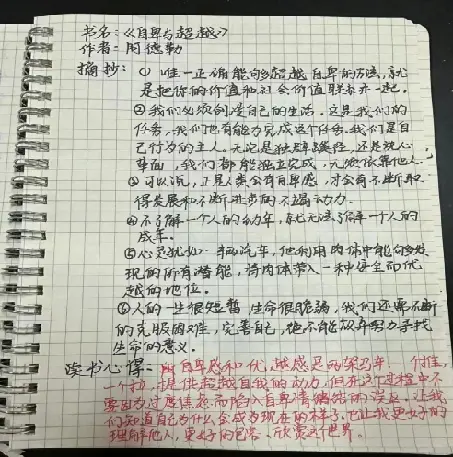 书名:《自卑与超越》
作者:阿德勒
摘抄:① 唯一正确能够超越自卑的方法,就
是把你的价值和社会价值联系在一起。
②我们必须创造自己的生活。这是我们的
任务,我们也有能力完成这个任务。我们是自
己行为的主人。无论是独辟蹊径,还是
,我们都能独立完成,无须依靠他人。
③可以说,正是人类会有自卑感,才会有不断取
得发展和不断进步的不竭动力。
④不了解一个人的幼年,就无法了解一个人的
成年。
⑤心灵犹如一辆汽车,他利用肉体中能够发
现的所有潜能,将肉体带入一种安全而优
越的地位。
⑥人的一生很短暂,生命很脆弱,我们还需不断
的克服困难,完善自己,绝不能放弃努力寻找
生命的意义。
读书心得: 自卑感和优越感是
一个 提供超越自我的动力,但在这个过程中不
要因为过度焦虑而陷入自卑情结的误区。让我
们知道自己为什么会成为现在的样子,也让我更好的
理解他人,更好的包容、欣赏这个世界。